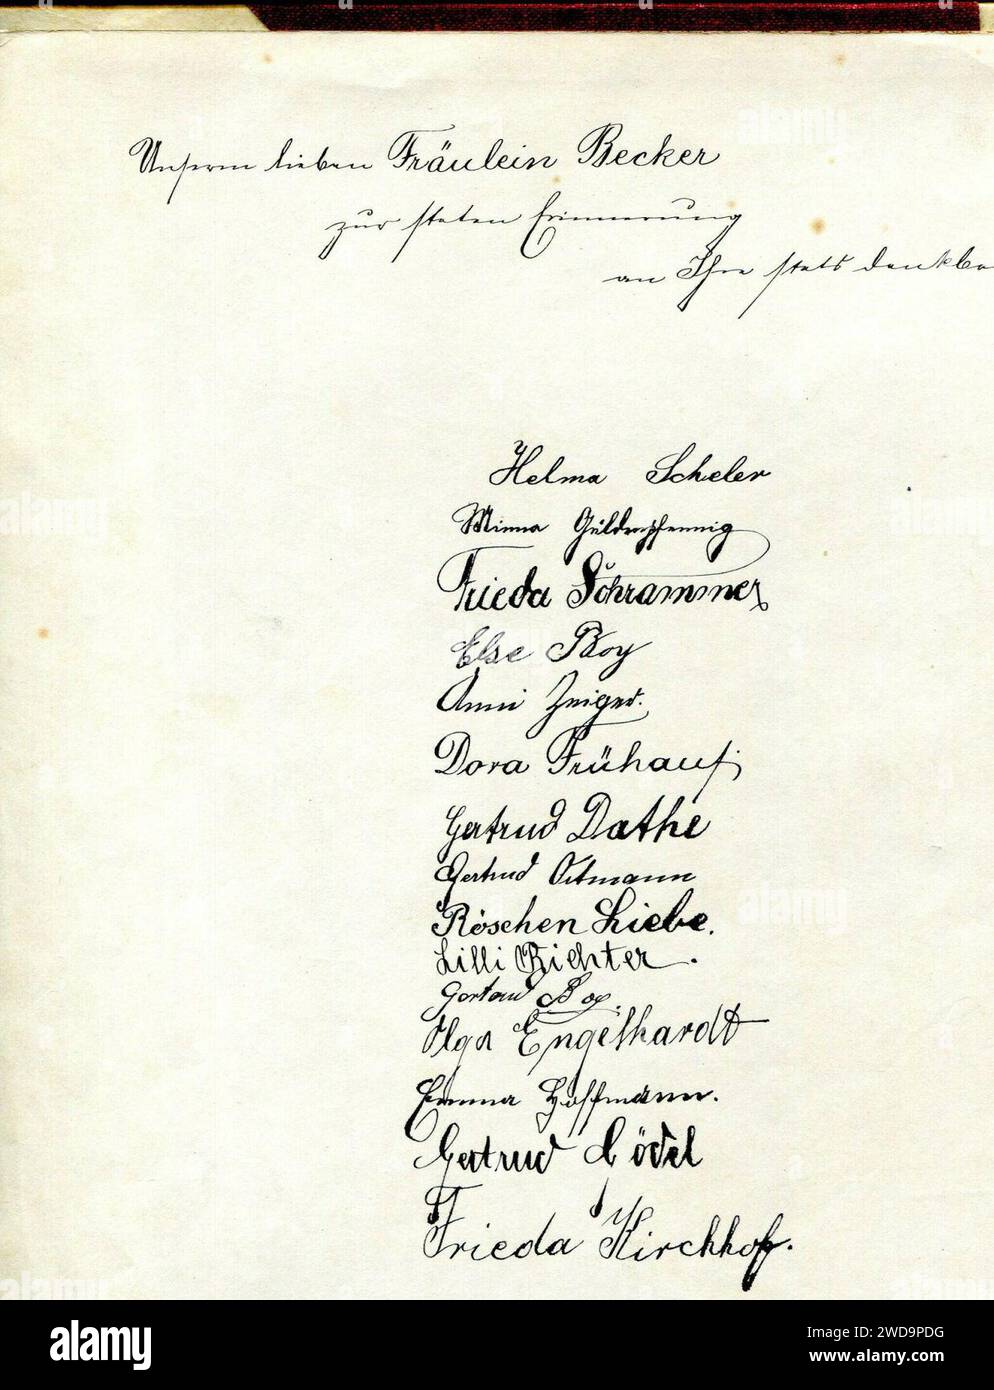 Unserm lieben Fräulein Becker
zur steten Erinnerung
an Ihre stets dankba
Helma Scheler
Minna Güldenpfennig
Frieda Schrammer
Else Boy
Anni Zeiger.
Dora Frühauf
Gertrud Dathe
Gertrud Ortmann
Röschen Liebe.
Lilli Richter.
Gertrud Boy.
Olga Engelhardt
Emma Hoffmann.
Gertrud Gödel
Frieda Kirchhoff.
alamy
Image ID: 2WD9PDG
www.alamy.com